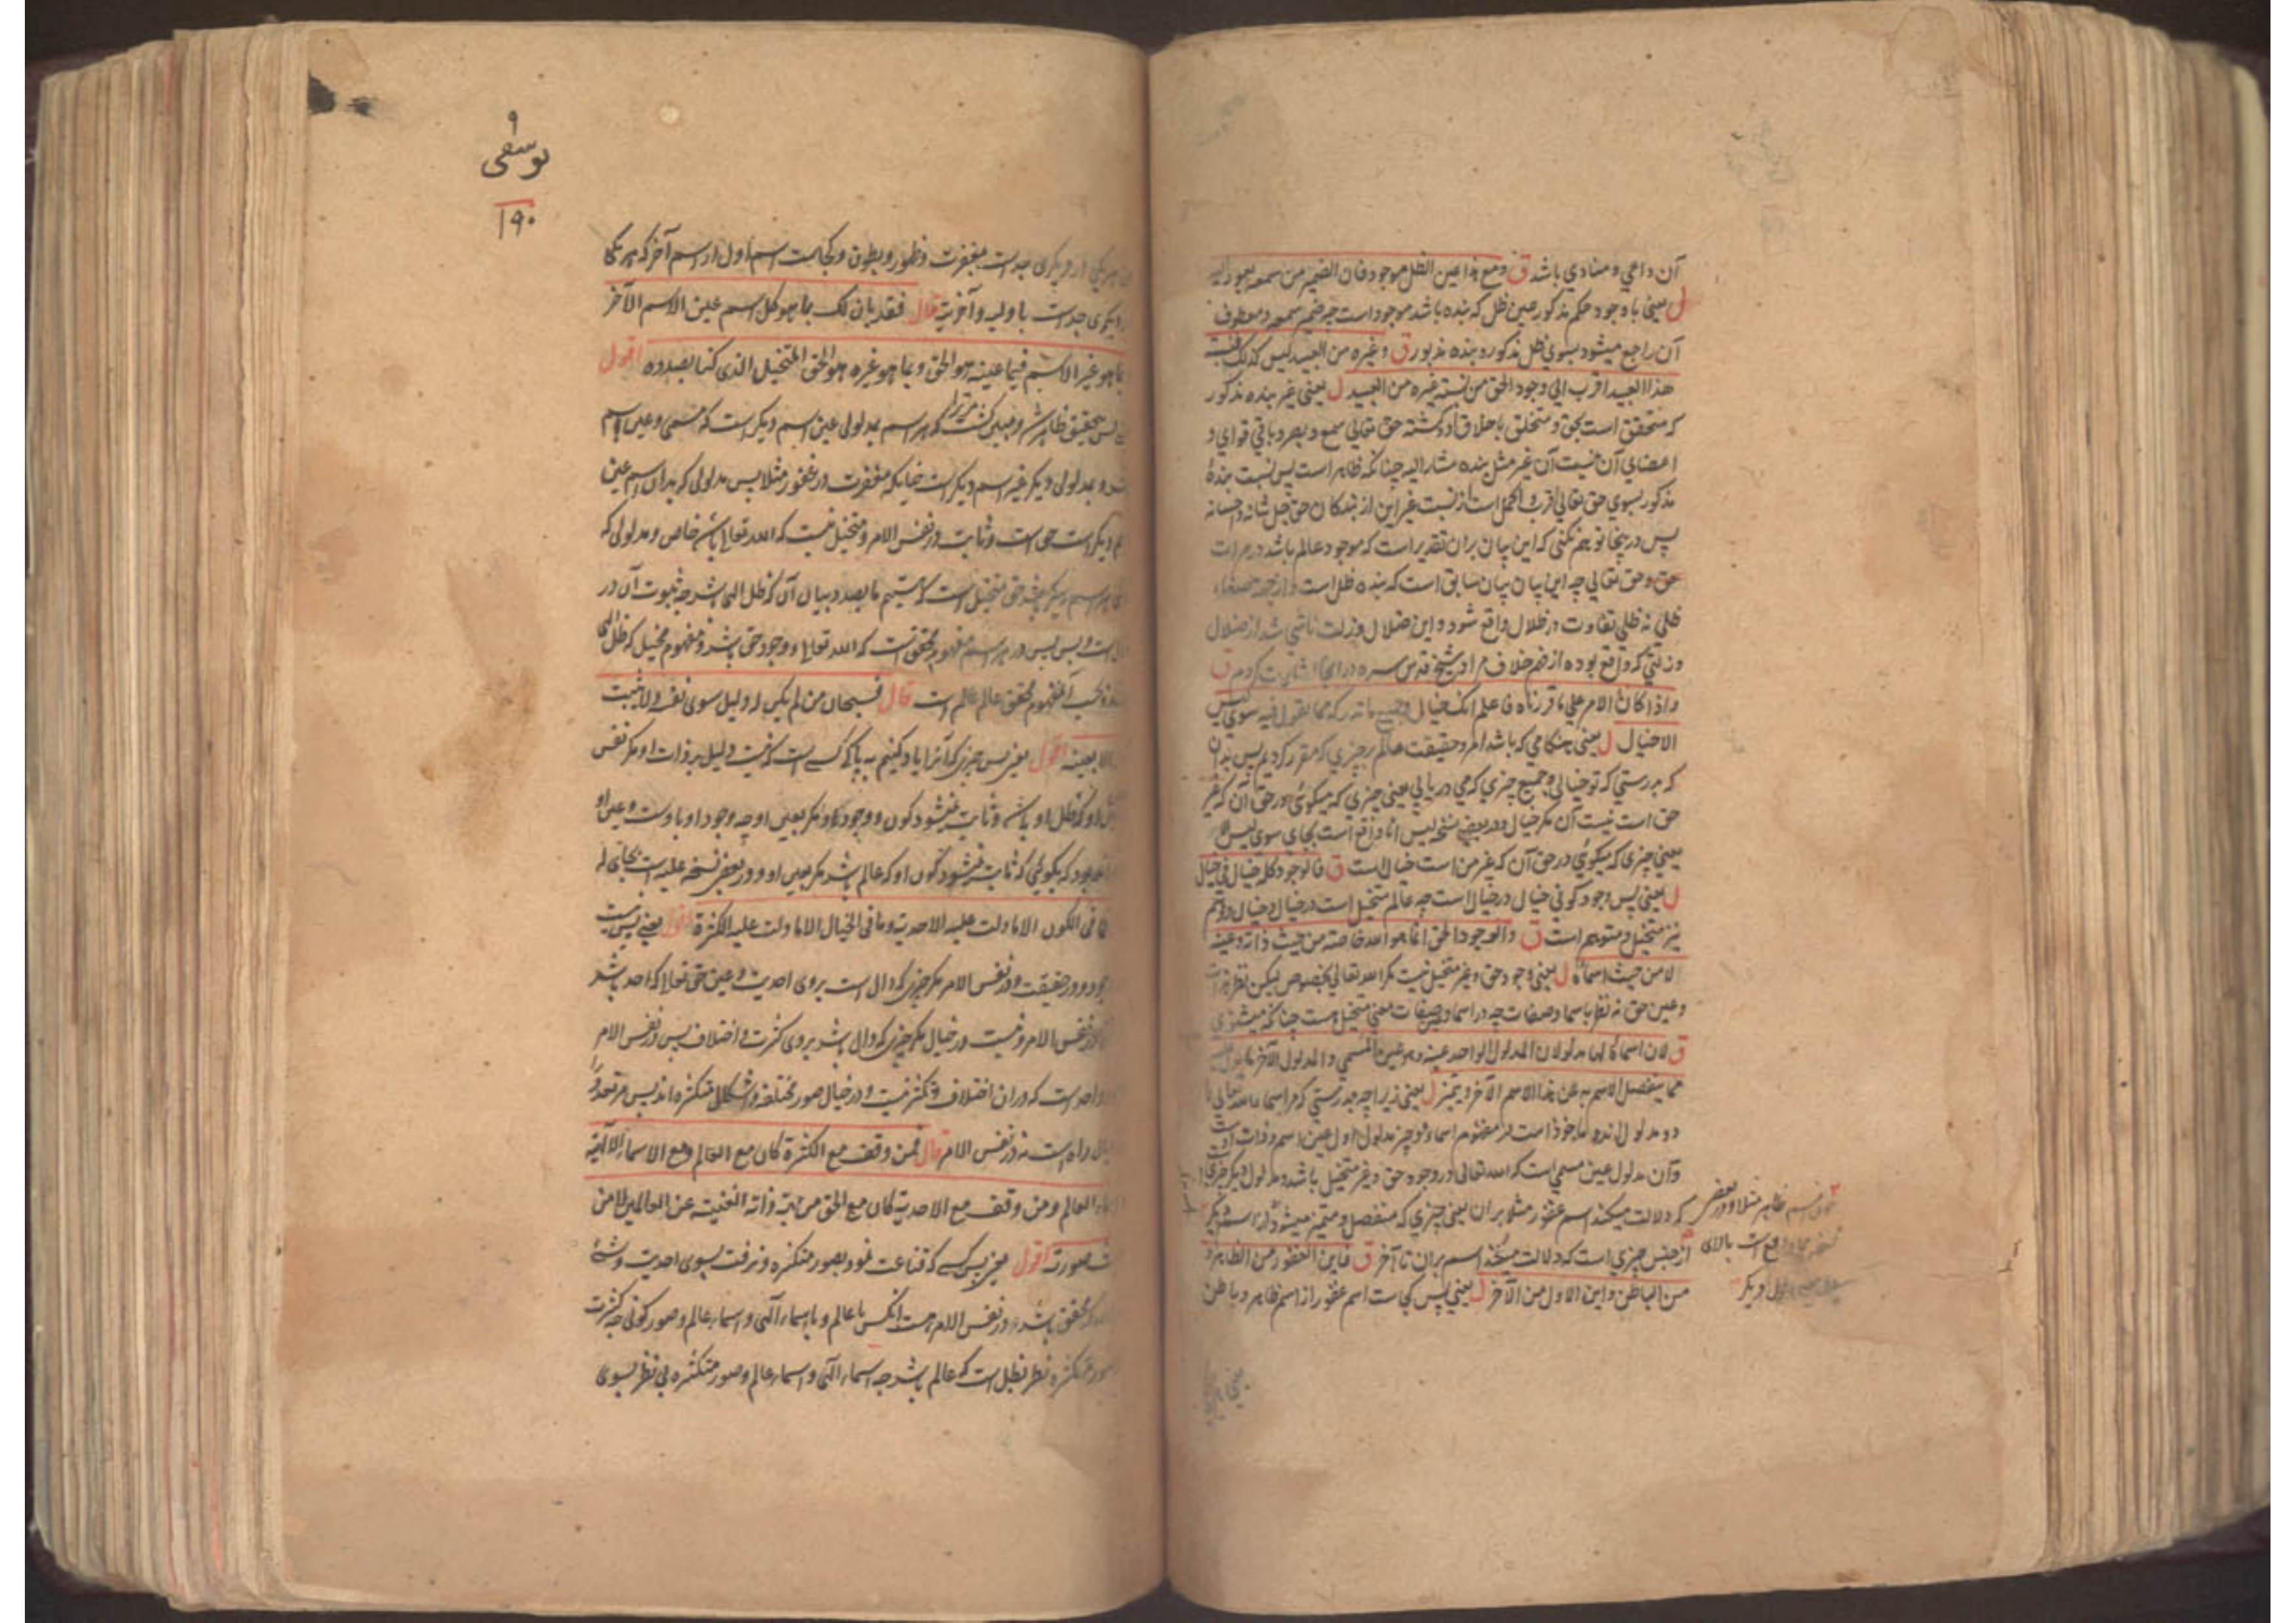 آن داعی و منادی باشد ق ومع هذا عین الظل موجود فان الضمیر من سمعه یعود الیه
ل یعنی با وجود حکم مذکور عین ظل که بنده باشد موجود است چه ضمیر سمعه و معطوف
آن راجع میشود بسوی ظل مذکور و بنده مذبور ق وغیره من العبید لیس کذلک فنسبة
هذا العبد اقرب الی وجود الحق من نسبة غیره من العبید ل یعنی غیر بنده مذکور
که متحقق است بحق و متخلق باخلاق او کشته حق تعالی سمع و بصر و باقی قوای و
اعضای آن نیست آن غیر مثل بنده مشار الیه چنانکه ظاهر است پس نسبت بنده
مذکور بسوی حق تعالی اقرب و اکمل است از نسبت غیر این از بندکان حق جل شانه و احسانه
پس در ینجا توهم نکنی که این بیان بران تقدیر است که موجود عالم باشد در مرات
حق و حق تعالی چه این بیان بیان سابق است که بنده ظل است و از جهة
ظلی نه ظلی تفاوت در ظلال واقع شود و این ضلال و زلت ناشی شد از ضلال
و زلتی که واقع بوده از فهم خلاف مراد شیخ قدس سره در انجا اشارت کردم ق
واذا کان الامر علی ما قررناه فاعلم انک خیال وجمیع ما تدرکه مما تقول فیه سوی لیس
الا خیال ل یعنی هنکامی که باشد امر و حقیقت عالم بر چیزی که مقرر کردیم پس بدان
که بدرستی که تو خیالی و جمیع چیزی که می دریابی یعنی چیزی که میکوئی در حق آن که غیر
حق است نیست آن مکر خیال و در بعضی نسخ لیس انا واقع است بجای سوی لیس
یعنی چیزی که میکوئی در حق آن که غیر من است خیال است ق فالوجود کله خیال فی خیال
ل یعنی پس وجود کونی خیال در خیال است چه عالم متخیل است در خیال و خیال و وهم
نیز متخیل و متوهم است ق والوجود الحق انما هو الله خاصة من حیث ذاته وعینه
لا من حیث اسمائه ل یعنی وجود حق و غیر متخیل نیست مکر الله تعالی بخصوص لیکن نظر بذات
و عین حق نه نظر باسما و صفات چه در اسما و صفات معنی متخیل هست چنانکه میشنوی
ق لان اسمائه لها مدلولان المدلول الواحد عینه وهو عین المسمی والمدلول الآخر ما یدل علیه
مما ینفصل الاسم به عن هذا الاسم الآخر ویتمیز ل یعنی زیرا چه بدرستی که مر اسماء الله تعالی را
دو مدلول اند و ماخوذ است در مفهوم اسماء دو چیز مدلول اول عین اسم و ذات اوست
و آن مدلول عین مسمی است که الله تعالی در وجود حق و غیر متخیل باشد و مدلول دیکر چیزی است
که دلالت میکند اسم غفور مثلا بران یعنی چیزی که منفصل و متمیز میشود از اسم دیکر
از جنس چیزی است که دلالت میکند اسم بران تا آخر ق فاین الغفور من الظاهر و
من الباطن واین الاول من الآخر ل یعنی پس کجاست اسم غفور از اسم ظاهر و باطن
اسم ظاهر مثلا و در بعض
واقع است بالای
دیکر
۹
یوسفی
۱۹۰
دیکری جداست مغفرت و ظهور و بطون و کجاست اسم اول از اسم آخر که هر یکی
از دیکری جداست باولیه و آخریه قال فقد بان لک بما هو کل اسم عین الاسم الآخر
بما هو غیر الاسم فبما عینه هو الحق وبما هو غیره هو الحق المتخیل الذی کنا بصدده اقول
پس بتحقیق ظاهر شد و مبین کشت مر ترا که هر اسم بمدلولی عین اسم دیکر است که مسمی و عین اسم
بود و بمدلولی دیکر غیر اسم دیکر است چنانکه مغفرت در غفور مثلا پس مدلولی که بدان اسم عین
اسم دیکر است حق است و ثابت در نفس الامر و متخیل نیست که الله تعالی باشد خاص و مدلولی که
اسم دیکر باشد حق متخیل است که هستیم ما بصدد بیان آن که ظل الهی باشد چه ثبوت آن در
است و بس پس در هر اسم مفهوم محقق است که الله تعالی و وجود حق باشد و مفهوم مخیل که ظل الهی
بود و بحسب آن مفهوم محقق عالم عالم است قال فسبحان من لم یکن له دلیل سوی نفسه ولا یثبت
الا بعینه اقول یعنی پس چیزی که آنرا یاد کنیم به پاکی کسی است که نیست دلیل بر ذات او مکر نفس
او که ظل او باشد و ثابت نمیشود کون و وجود او مکر بعین او چه وجود او باوست و عین او
بود که بکوئی که ثابت نمیشود کون او که عالم باشد مکر بعین او و در بعض نسخه علیه است بجای له
فما فی الکون الا ما دلت علیه الاحدیة وما فی الخیال الا ما دلت علیه الکثرة اقول یعنی پس نیست
وجود و در حقیقت و در نفس الامر مکر چیزی که دال است بروی احدیت و عین حق تعالی که احد باشد
در نفس الامر و نیست در خیال مکر چیزی که دال باشد بروی کثرت و اختلاف پس در نفس الامر
واحد است که دران اختلاف و تکثر نیست و در خیال صور مختلفه و اشکال متکثره اند پس مر تعدد را
خیال راه است نه در نفس الامر قال فمن وقف مع الکثرة کان مع العالم ومع الاسماء الالهیة
واسماء العالم ومن وقف مع الاحدیة کان مع الحق من حیث ذاته الغنیة عن العالمین لا من
حیث صورته اقول یعنی پس کسی که قناعت نمود بصور متکثره و نرفت بسوی احدیت و شئ
که محقق باشد در نفس الامر هست انکس با عالم و با اسماء الهی و اسماء عالم و صور کونی چه کثرت
صور متکثره نظر بظل است که عالم باشد چه اسماء الهی و اسماء عالم و صور متکثره بی نظر بسوی